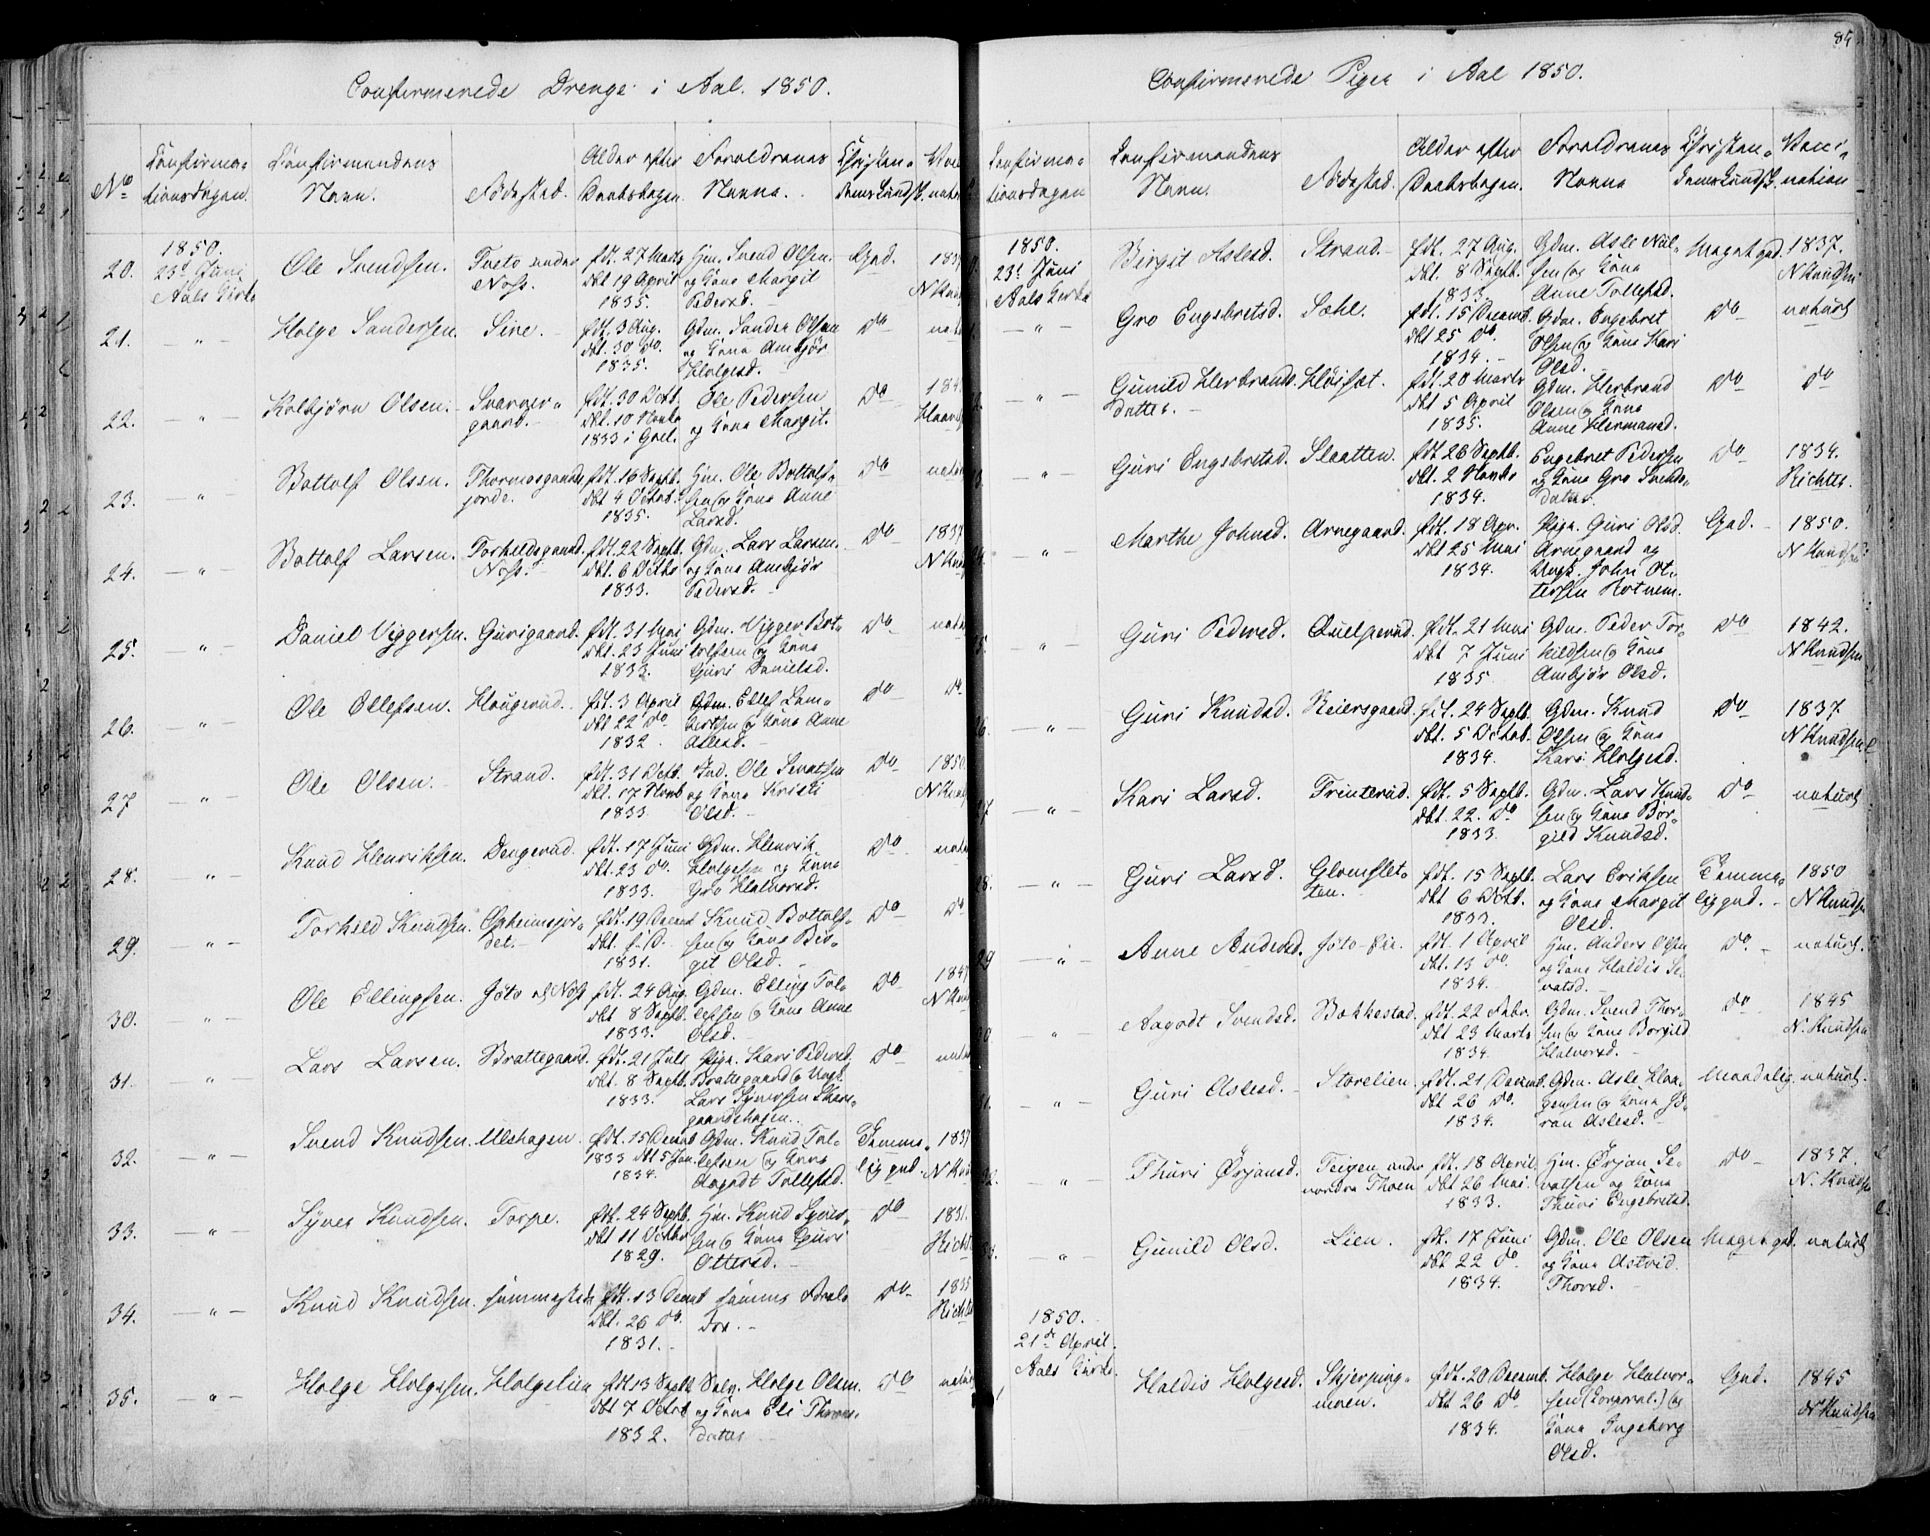 85
Confirmerede Drenge i Aal. 1850.
No
Confirma-
tionsdagen.
Confirmandens
Navn.
Fødested.
Alder efter
Daabsdagen.
Forældrenes
Navne.
Christen-
domskundsk.
20.
1850.
23de Juni
Aals Kirke
Ole Svendsen.
Tveto under
Noss.
fdt. 27 Marts
dbt 19 April
1835.
Hm. Svend Olsen
og Kone Margit
Pedersd.
God.
21.
Holge Sandersen.
Sire.
fdt. 3 Aug.
dbt. 30 do.
1835.
Gdm. Sander Olsen
og Kone Ambjør
Holgesd.
do
22.
Kolbjørn Olsen.
Svarver-
gaard.
fdt. 30 Octb.
dbt. 10 Novbr
1833 i Goel.
Ole Pedersen
og Kone Margit.
do
23.
Bottolf Olsen.
Thormosgaards
jorde.
fdt. 16 Septb.
dbt 4 Octob.
1835.
Hm. Ole Bottolf-
sen og Kone Anne
Larsd.
do
24.
Bottolf Larsen.
Torkildsgaard
Noss.
fdt. 22 Septb.
dbt. 6 Octbr
1833.
Gdm. Lars Larsen
og Kone Ambjør
Pedersd.
do
1837
25.
Daniel Viggersen.
Gurigaard.
fdt. 31 Mai
dbt. 23 Juni
1833.
Gdm. Vigger Bot-
tolfsen og Kone
Guri Danielsd.
do
26.
Ole Ellefsen.
Haugerud.
fdt. 3 April
dbt 22 do
1832.
Gdm. Ellef Lam-
bertsen og Kone Anne
Aslesd.
do
do
27
Ole Olsen.
Strand.
fdt. 31 Octb.
dbt. 17 Novb
1833.
Ind. Ole Senatsen
og Kone Kristi
Olsd.
do
1850.
28.
Knud Henriksen.
Dengerud.
fdt. 17 Juni
dbt. 23 do
1833.
Gdm. Henrik
Holgesen og Kone
Gro Halvorsd.
do
29.
Torkild Knudsen.
Opheimsjor-
det.
fdt. 19 Decmb
1831.
Knud Bottolf-
sen og Kone Bir-
git Olsd.
do
do
30.
Ole Ellingsen.
Gjøto af Noss
fdt. 24 Aug.
dbt 8 Septb.
1833.
Gdm. Elling Tol-
lefsen og Kone Anne
Olsd.
do
1847
31.
Lars Larsen.
Brattegaard.
fdt. 21 Juli
dbt. 8 Septb.
1833.
Pige. Kari Pedersd.
Brattegaard og Ungk.
Lars Syversen Thors-
gaardshagen.
do
32.
Svend Knudsen.
Ulshagen.
fdt. 15 Decmb
1833 dbt 5 Jan.
1834.
Gdm. Knud Tol-
lefsen og Kone
Aagodt Tollefsd.
Temme-
lig god.
1837
33.
Syver Knudsen.
Torpe.
fdt. 24 Septb.
dbt 11 Octbr
1829.
Hm. Knud Syver-
sen og Kone Guri
Ottersd.
do
1831.
34.
Knud Knudsen.
sammesteds
fdt. 13 Decmb
dbt. 26 do.
1831.
samme Foræl-
dre.
do
1835
35.
Holge Holgesen.
Holgelien
fdt 13 Septb
dbt 7 Octob
1832.
Selv. Holge Olsen
og Kone Eli Thors-
datter
do
Confirmerede Piger i Aal 1850.
Confirma-
tionsdagen
Confirmandens
Navn.
Fødested.
Alder efter
Daabsdagen.
Forældrenes
Navne
Christen-
domskundsk.
Vacci-
nation
1850.
23de Juni
Aals Kirke
Birgit Aslesd.
Strand.
fdt. 27 Aug.
dbt. 8 Septb.
1833.
Gdm. Asle Nil-
sen og Kone
Anne Tollefsd.
Meget god.
1837.
N Knudsen
Gro Engebretsd.
Sæhl.
fdt. 15 Decemb.
dbt 25 do.
1834.
Gdm. Engebret
Olsen og Kone Kari
Olsd.
do
naturl
Gunild Herbrands
datter.
Høiset.
fdt. 20 Marts
dbt 5 April
1835.
Gdm. Herbrand
Olsen og Kone
Anne Hermansd.
do
do
Guri Engebretsd.
Slaatten.
fdt 26 Septb.
dbt. 2 Novbr
1834.
Engebret Pedersen
og Kone Gro Svends-
datter.
do
1834.
Richter.
Marthe Johnsd.
Arnegaard.
fdt. 18 Apr.
dbt 25 Mai
1834.
Pige. Guri Olsd.
Arnegaard og
Ungk. John Ot-
tersen Rotneim.
God.
1850.
N Knudsen
Guri Pedersd.
Quelperud.
fdt. 21 Mai
dbt 7 Juni
1835
Gdm. Peder Tor-
kildsen og Kone
Ambjør Olsd.
do
1842.
N Knudsen
Guri Knudsd.
Reiersgaard.
fdt. 24 Septb.
dbt. 5 Octob.
1834.
Gdm. Knud
Olsen og Kone
Kari Holgesd.
do
1837
N Knudsen
Kari Larsd.
Trinterud.
fdt. 5 Septb.
dbt. 22. do
1833.
Gdm. Lars Knud-
sen og Kone Bør-
gild Knudsd.
do
naturl
Guri Larsd.
Glomslet-
ten.
fdt. 15 Septb.
dbt 6 Octb.
1833.
Lars Eriksen
og Kone Margit
Olsd.
Temme-
lig god.
1850
N Knudsen
Anne Andersd.
Gjøto-Eie.
fdt. 1 April
dbt. 13 do.
1834.
Hm. Anders Olsen
og Kone Haldis Se-
natsd.
do.
naturl.
Aagodt Svendsd.
Bakkestad.
fdt. 22 Febr.
dbt 23 Marts
1834.
Gdm. Svend Thor-
sen og Kone Borgild
Halvorsd.
do
1845
N. Knudsen
Guri Aslesd.
Storelien.
fdt. 21 Decemb.
dbt 26 do.
1834.
Gdm. Asle Haa-
gensen og Kone Gjø-
ran Aslesd.
Maadelig.
naturl.
Thuri Ørjansd.
Teigen under
nordre Thoen
fdt. 18 April.
dbt 26 Mai.
1833.
Hm. Ørjan Se-
natsen og Kone
Thuri Engebretsd.
do
1837.
N. Knudsen
Gunild Olsd.
Lien.
fdt. 17 Juni
dbt 22 do.
1834.
Gdm. Ole Olsen
og Kone Astrid
Thorsd.
Meget god.
naturl
1850.
21de April.
Aals Kirke.
Haldis Holgesd.
Skjerping-
moen.
fdt. 20 Decemb.
dbt 26 do
1834.
Holge Halvor-
sen (Corporal.) og
Kone Ingeborg
Olsd.
God.
1845
N Knudsen